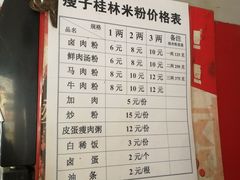 瘦子桂林米粉价格表
品种 规格 1两 2两 3两 备注
卤肉粉 6元 8元 10元
鲜肉汤粉 8元 10元 12元
马肉粉 8元 10元 12元
牛肉粉 8元 10元 12元
加肉 5元/份
炒粉 15元/份
皮蛋瘦肉粥 12元/份
白稀饭 3元/份
卤蛋 2元/个
油条 2元/根